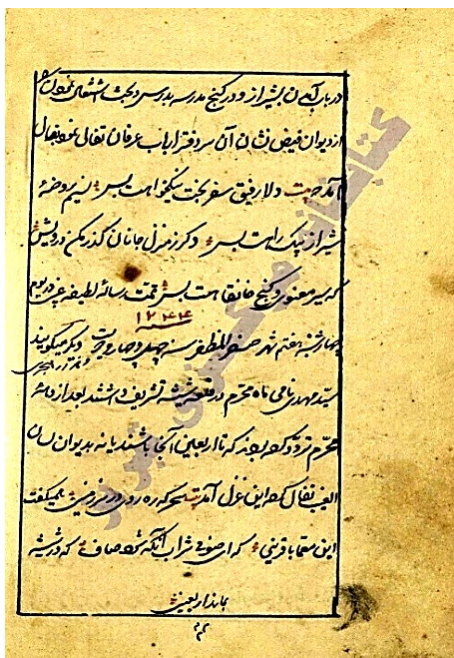 در باب آمدن بشیراز و در کنج مدرسه بدرس و بحث اشتغال نمودن
از دیوان فیض نشان آن سر دفتر ارباب عرفان تفأل نمود بفال
آمد دلا رفیق سفر بخت نیکخواهت بس نسیم روضهٔ
شیراز پیک راهت بس دگر ز منزل جانان گذر مکن درویش
که سیر معنوی و کنج خانقاهت بس تمت رسالهٔ لطیفه غیبیه یوم
۱۲۴۴
چهارشنبه هفتم شهر صفر المظفر سنه چهل و چهار دیگر میگویند
سید مهدی نامی ماه محرم در قلعه تشریف داشتند بعد از ماه
محرم تردد که تا اربعین آنجا باشند یا نه بدیوان لسان
الغیب تفأل که این غزل آمد سحرگه ره روی در سرزمینی همیگفت
این معما با قرینی که ای صوفی شراب آنگه شود صاف که در شیشه
بماند اربعینی
کتابخانه مرکزی تبریز